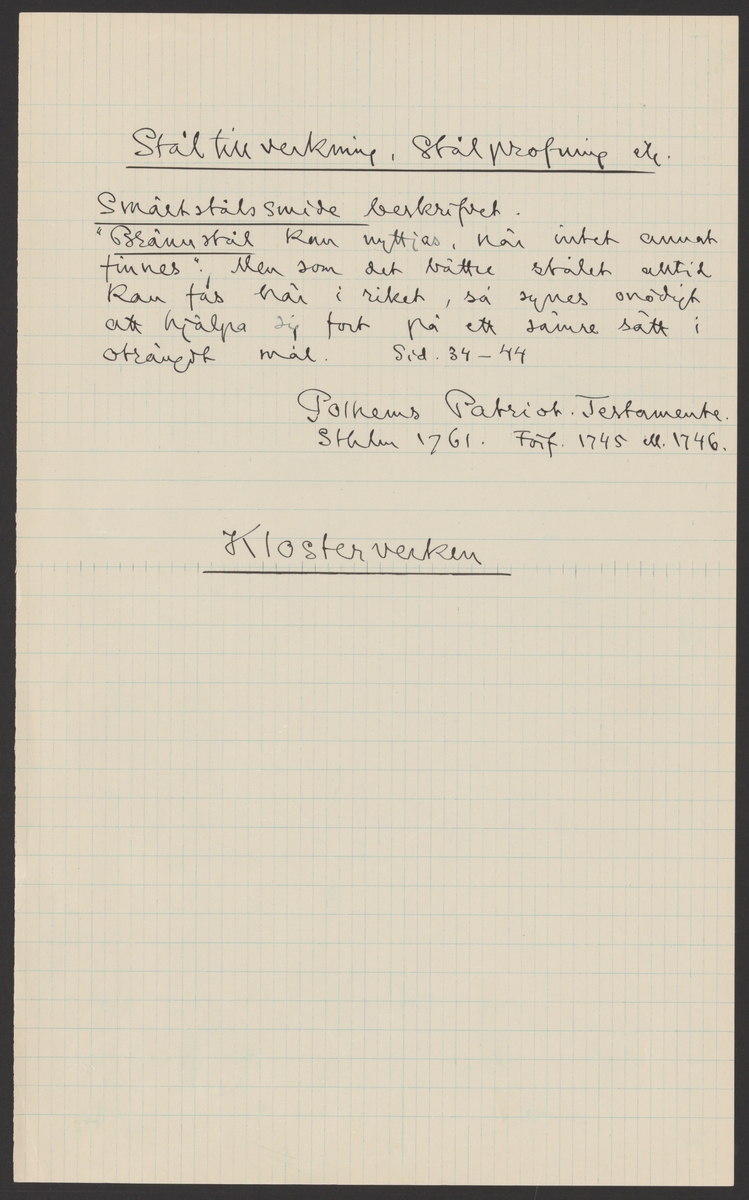 Ståltillverkning, Stålprofning etc.
Smältstålssmide beskrifvet.
"Brännstål kan nyttjas, när intet annat
finnes". Men som det bättre stålet alltid
kan fås här i riket, så synes onödigt
att hjälpa sig fort på ett sämre sätt i
oträngdt mål. Sid. 34-44
Polhems Patriot. Testamente.
Sthlm 1761. Förf. 1745 ell. 1746.
Klosterverken